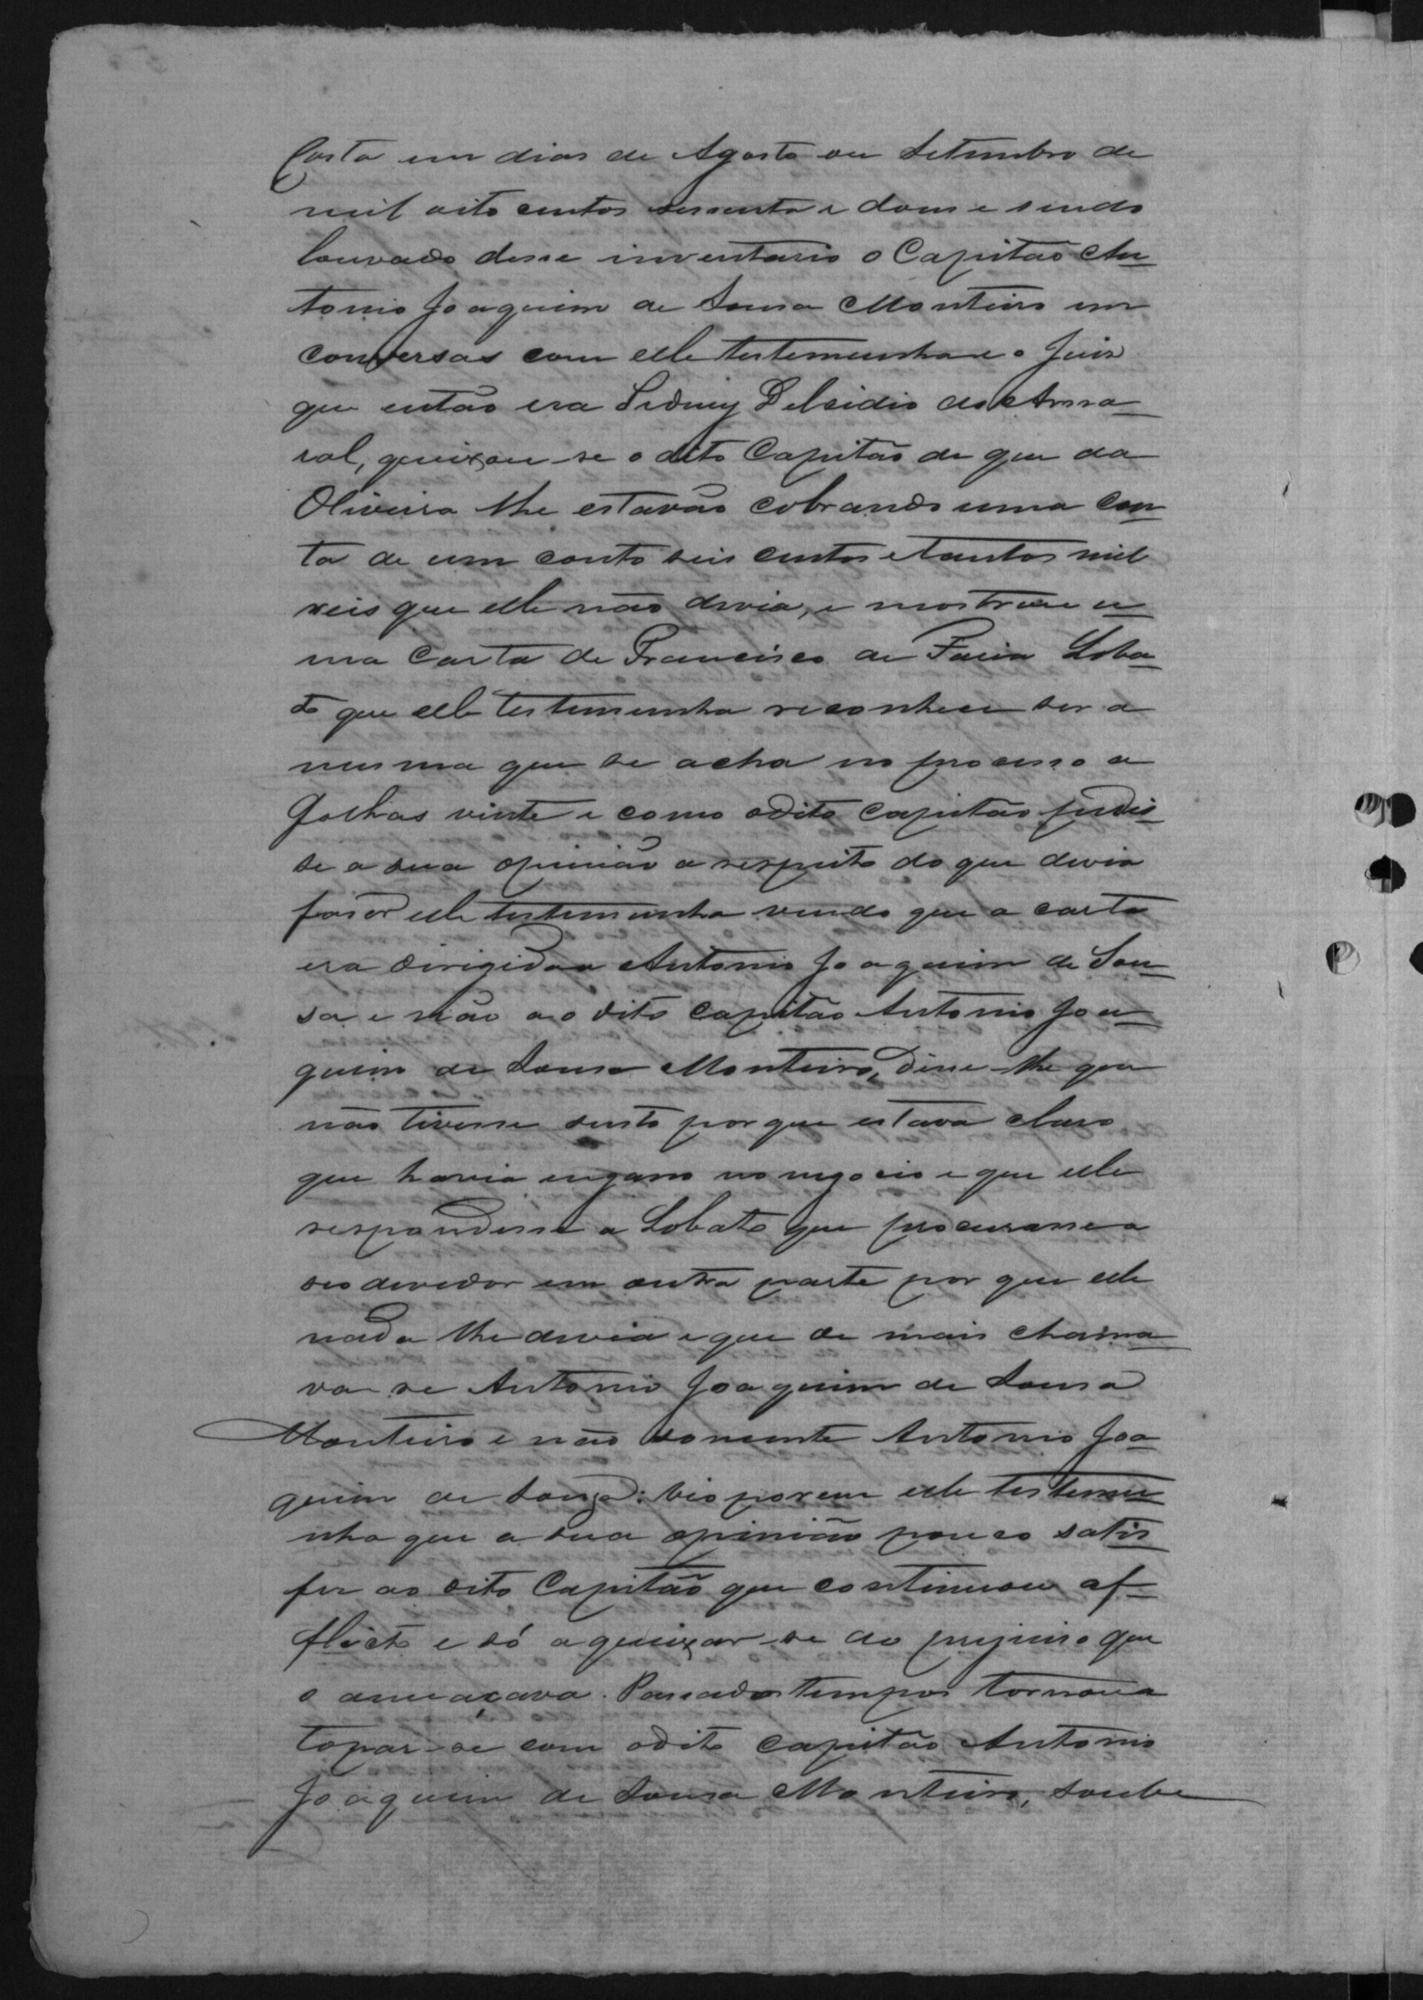 Costa em dias de Agosto ou Setembro de
mil oito centos sessenta e dous e sendo
louvado desse inventario o Capitão An-
tonio Joaquim de Sousa Monteiro em
conversas com elle testemunha e o Juiz
que então era Sidney Delcidio do Ama-
ral, queixou-se o dito Capitão de que da
Oliveira lhe estavão cobrando uma con-
ta de um conto seis centos e tantos mil
reis que elle não devia, e mostrou u-
ma carta de Francisco de Faria Loba-
to que elle testemunha reconhece ser a
mesma que se acha no processo a
folhas vinte e como o dito capitão pedis-
se a sua opinião a respeito do que devia
faser elle testemunha vendo que a carta
era dirigida a Antonio Joaquim de Sou-
sa e não ao dito capitão Antonio Joa-
quim de Sousa Monteiro, disse-lhe que
não tivesse susto por que estava claro
que havia engano no negocio e que elle
respondesse a Lobato que procurasse a
seo devedor em outra parte por que elle
nada lhe devia e que de mais chama-
va-se Antonio Joaquim de Sousa
Monteiro e não somente Antonio Joa-
quim de Souza: vio porem elle testemu-
nha que a sua opinião pouco satis-
fez ao dito Capitão que continuou af-
flicto e só a queixar-se do prejuiso que
o ameaçava. Passados tempos tornou a
topar-se com o dito capitão Antonio
Joaquim de Sousa Monteiro, soube